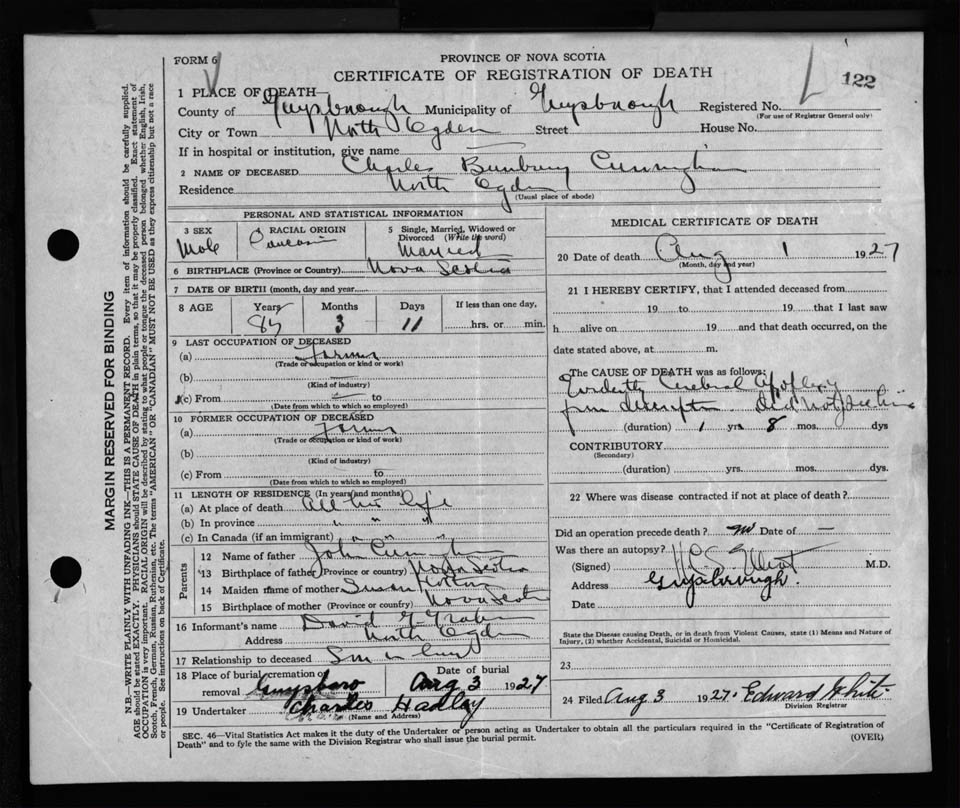 FORM 6
PROVINCE OF NOVA SCOTIA
CERTIFICATE OF REGISTRATION OF DEATH
122
1 PLACE OF DEATH—
County of Guysborough Municipality of Guysborough Registered No.
(For use of Registrar General only)
City or Town North Ogden Street House No.
If in hospital or institution, give name —
2 NAME OF DECEASED Charles Bunbury
Residence North Ogden
(Usual place of abode)
PERSONAL AND STATISTICAL INFORMATION
3 SEX Male
4 RACIAL ORIGIN
5 Single, Married, Widowed or Divorced (Write the word) Married
6 BIRTHPLACE (Province or Country) Nova Scotia
7 DATE OF BIRTH (month, day and year)
8 AGE Years Months Days If less than one day,
3 11 hrs. or min.
9 LAST OCCUPATION OF DECEASED
(a) Farmer
(Trade or occupation or kind of work)
(b) —
(Kind of industry)
(c) From — to
(Date from which to which so employed)
10 FORMER OCCUPATION OF DECEASED
(a) Farmer
(Trade or occupation or kind of work)
(b)
(Kind of industry)
(c) From to
(Date from which to which so employed)
11 LENGTH OF RESIDENCE (In years and months)
(a) At place of death all his life
(b) In province " " "
(c) In Canada (if an immigrant) " " "
Parents
12 Name of father John
13 Birthplace of father (Province or country) Nova Scotia
14 Maiden name of mother Susan
15 Birthplace of mother (Province or country) Nova Scotia
16 Informant's name David G.
Address North Ogden
17 Relationship to deceased Son in law
18 Place of burial, cremation or removal Guysboro Date of burial Aug 3 1927
19 Undertaker Charles Hadley
(Name and Address)
MEDICAL CERTIFICATE OF DEATH
20 Date of death Aug 1 1927
(Month, day and year)
21 I HEREBY CERTIFY, that I attended deceased from
19 to 19 that I last saw
h alive on 19 and that death occurred, on the
date stated above, at m.
The CAUSE OF DEATH was as follows:
Evidently Cerebral Apoplexy
from description Did not see him
(duration) 1 yrs 8 mos. dys
CONTRIBUTORY
(Secondary)
(duration) yrs. mos. dys.
22 Where was disease contracted if not at place of death?
Did an operation precede death? no Date of —
Was there an autopsy?
(Signed) M.D.
Address Guysborough.
Date
State the Disease causing Death, or in death from Violent Causes, state (1) Means and Nature of
Injury, (2) whether Accidental, Suicidal or Homicidal.
23
24 Filed Aug 3 1927. Edward White
Division Registrar
SEC. 46—Vital Statistics Act makes it the duty of the Undertaker or person acting as Undertaker to obtain all the particulars required in the "Certificate of Registration of
Death" and to fyle the same with the Division Registrar who shall issue the burial permit.
(OVER)
MARGIN RESERVED FOR BINDING
N.B.—WRITE PLAINLY WITH UNFADING INK—THIS IS A PERMANENT RECORD. Every item of information should be carefully supplied.
AGE should be stated EXACTLY. PHYSICIANS should STATE CAUSE OF DEATH in plain terms, so that it may be properly classified. Exact statement of
OCCUPATION is very important. RACIAL ORIGIN will be described by stating to what people or tongue the deceased person belonged whether English, Irish,
Scotch, French, German, Russian, Ruthenian, etc. The terms "AMERICAN" or "CANADIAN" MUST NOT BE USED as they express citizenship but not a race
or people. See instructions on back of Certificate.